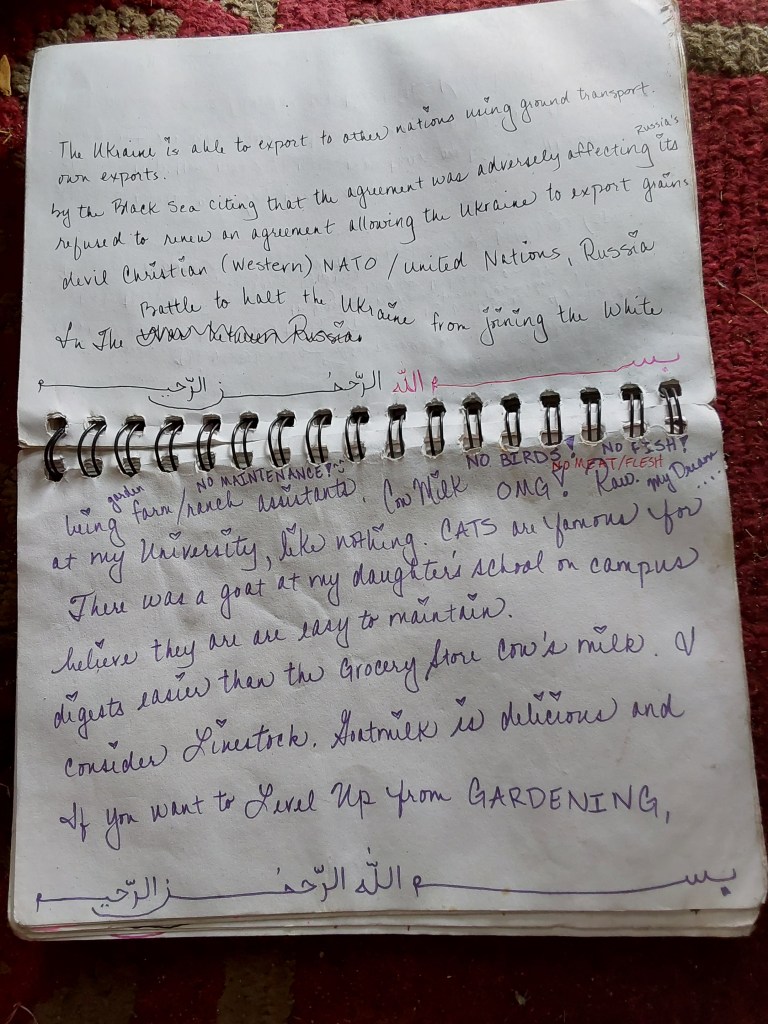 بسم الله الرحمن الرحيم
In The Battle to halt the Ukraine from joining the White
devil Christian (Western) NATO / United Nations, Russia
refused to renew an agreement allowing the Ukraine to export grains
by the Black Sea citing that the agreement was adversely affecting its Russia's
own exports.
The Ukraine is able to export to other nations using ground transport.
بسم الله الرحمن الرحيم
If you want to Level Up from GARDENING,
consider Livestock. Goatmilk is delicious and
digests easier than the Grocery Store Cow's milk. I
believe they are are easy to maintain.
There was a goat at my daughter's school on campus
at my University, like nothing. CATS are famous for
being garden farm/ranch assistants. Cow Milk OMG! Raw. my Dream....
NO MAINTENANCE! NO BIRDS! NO MEAT/FLESH NO FISH!